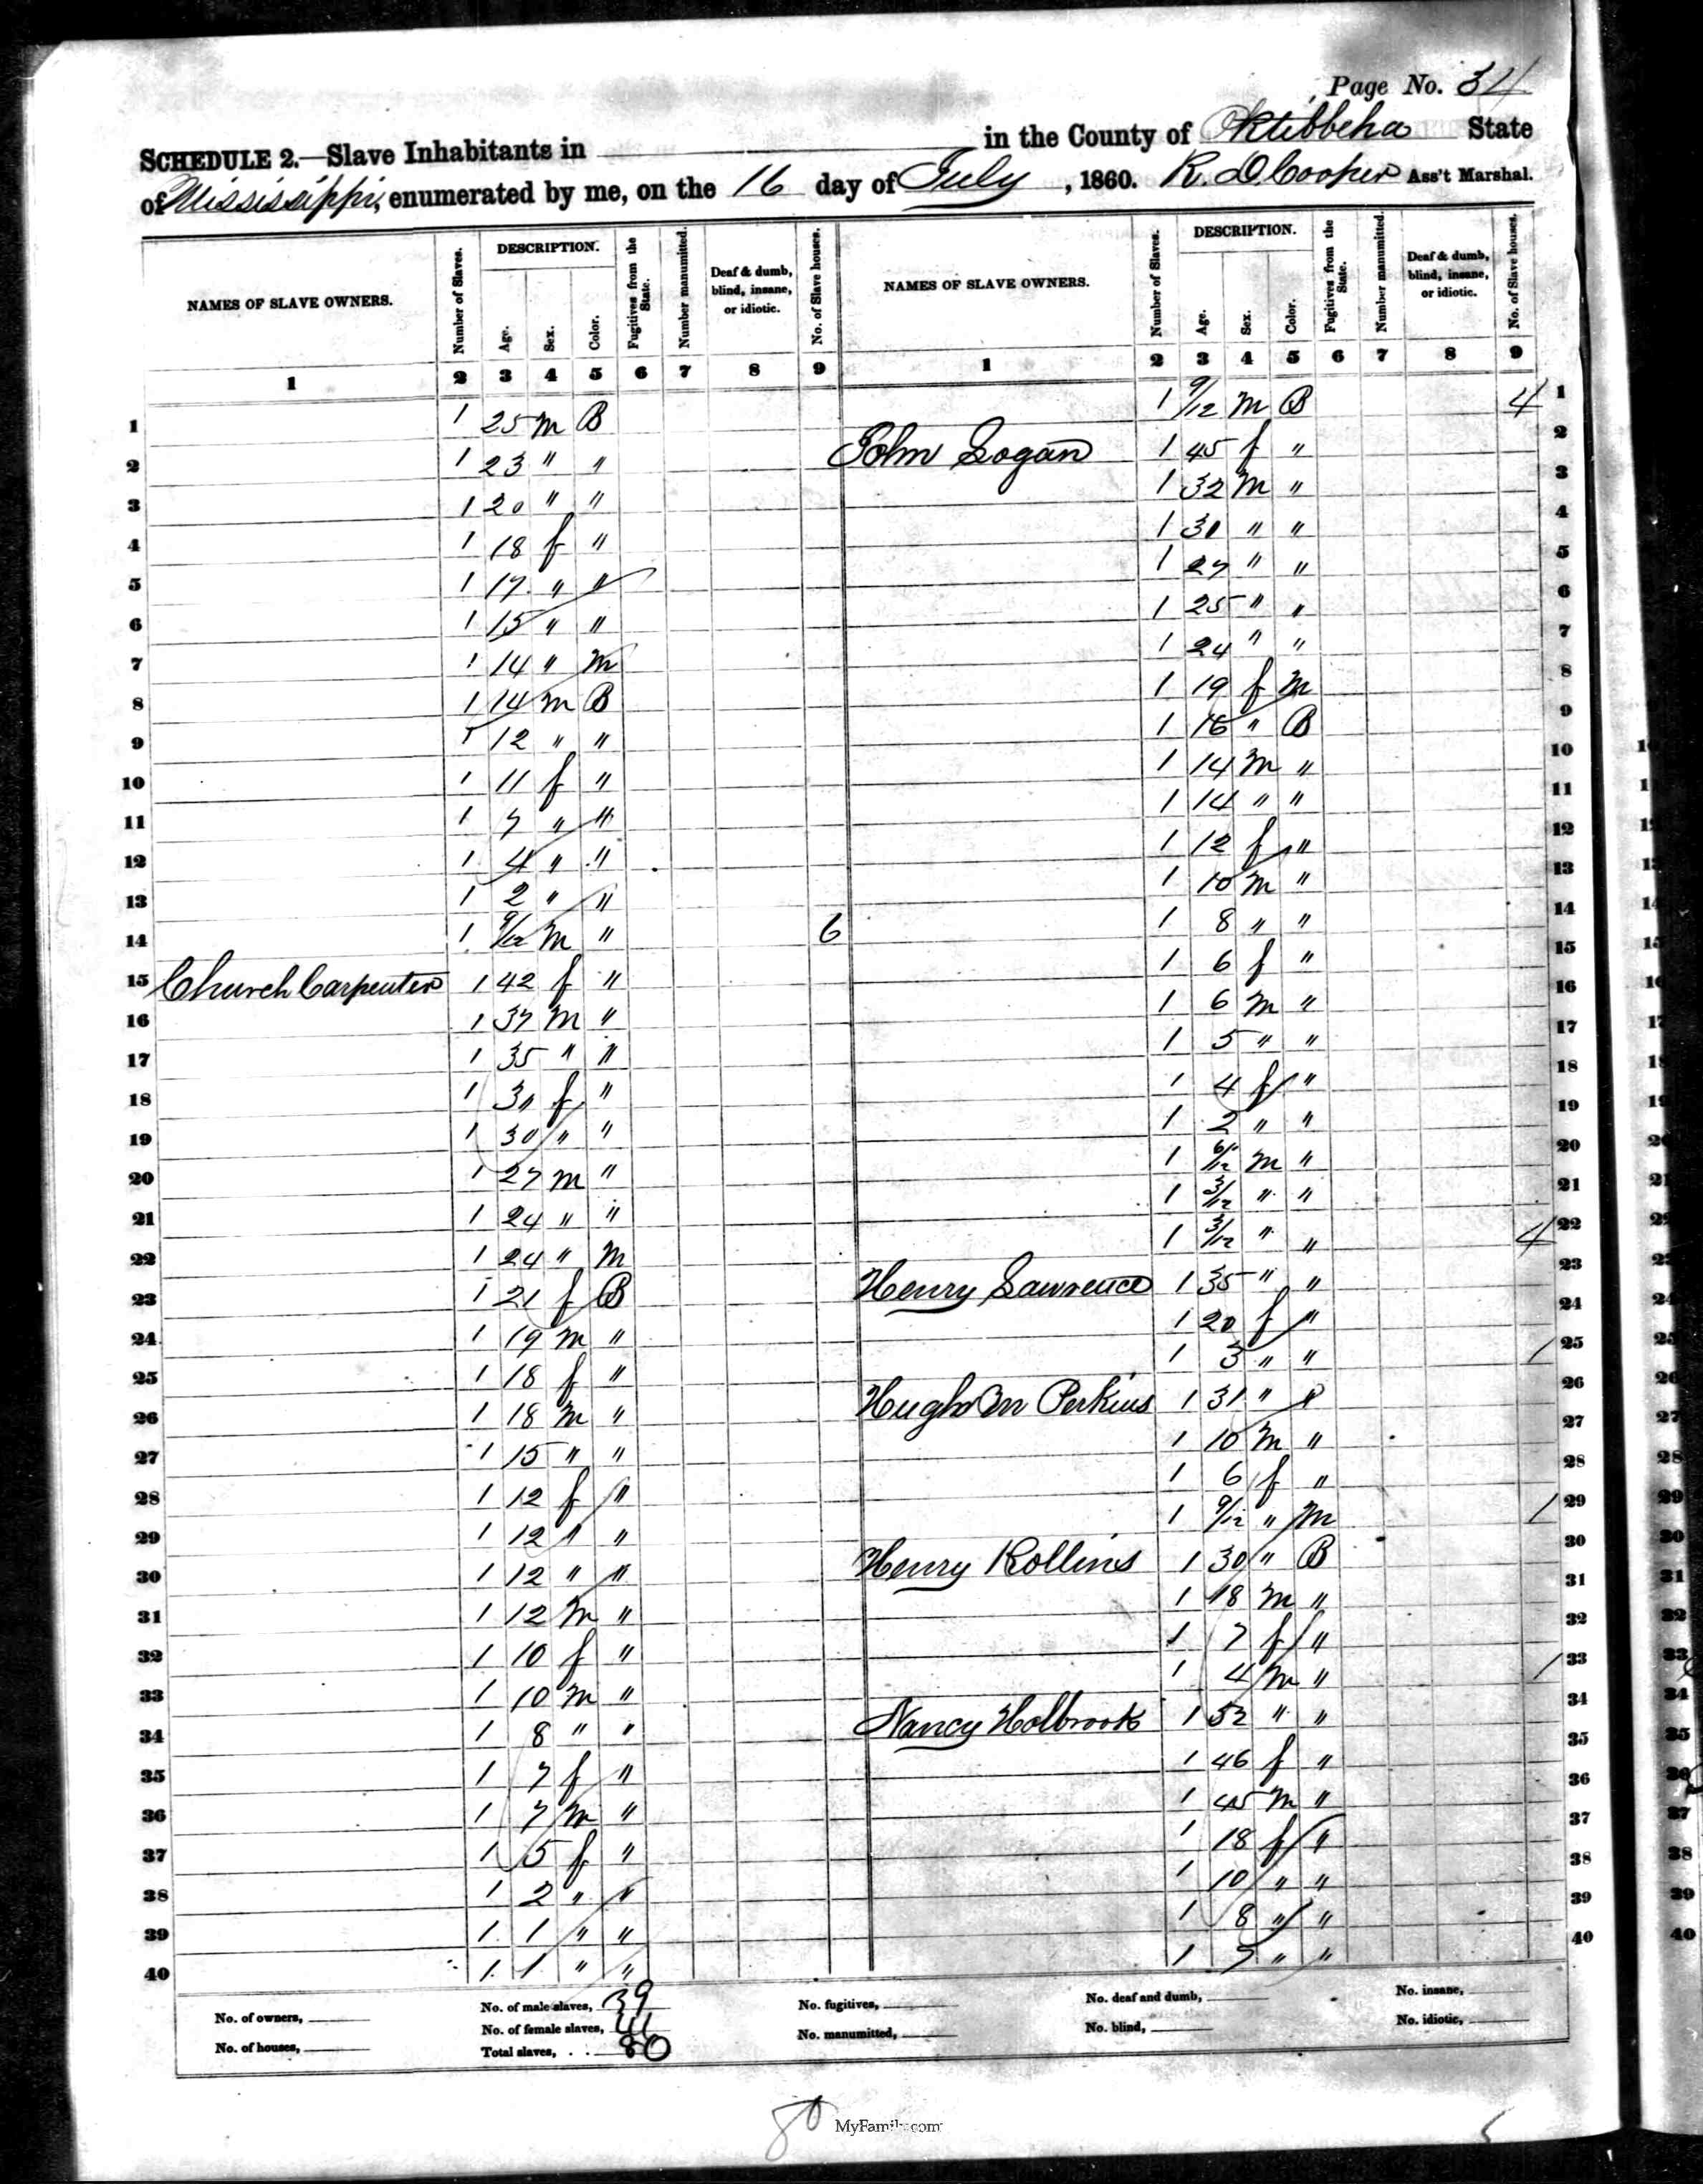 Page No. 34
SCHEDULE 2.—Slave Inhabitants in in the County of Oktibbeha State
of Mississippi, enumerated by me, on the 16 day of July, 1860. R. D. Cooper Ass't Marshal.
NAMES OF SLAVE OWNERS. Number of Slaves. DESCRIPTION. Age. Sex. Color. Fugitives from the State. Number manumitted. Deaf & dumb, blind, insane, or idiotic. No. of Slave houses. NAMES OF SLAVE OWNERS. Number of Slaves. DESCRIPTION. Age. Sex. Color. Fugitives from the State. Number manumitted. Deaf & dumb, blind, insane, or idiotic. No. of Slave houses.
1 2 3 4 5 6 7 8 9 1 2 3 4 5 6 7 8 9
1 1 25 m B 1 9/12 m B 4 1
2 1 23 " " John Logan 1 45 f " 2
3 1 20 " " 1 32 m " 3
4 1 18 f " 1 30 " " 4
5 1 17 " " 1 27 " " 5
6 1 15 " " 1 25 " " 6
7 1 14 " m 1 24 " " 7
8 1 14 m B 1 19 f m 8
9 1 12 " " 1 16 " B 9
10 1 11 f " 1 14 m " 10
11 1 7 " " 1 14 " " 11
12 1 4 " " 1 12 f " 12
13 1 2 " " 1 10 m " 13
14 1 9/12 m " 6 1 8 " " 14
15 Church Carpenter 1 42 f " 1 6 f " 15
16 1 37 m " 1 6 m " 16
17 1 35 " " 1 5 " " 17
18 1 30 f " 1 4 f " 18
19 1 30 " " 1 2 " " 19
20 1 27 m " 1 6/12 m " 20
21 1 24 " " 1 3/12 " " 21
22 1 24 " m 1 3/12 " " 4 22
23 1 21 f B Henry Lawrence 1 35 " " 23
24 1 19 m " 1 20 f " 24
25 1 18 f " 1 3 " " 1 25
26 1 18 m " Hugh M Perkins 1 31 " " 26
27 1 15 " " 1 10 m " 27
28 1 12 f " 1 6 f " 28
29 1 12 " " 1 9/12 " m 1 29
30 1 12 " " Henry Rollins 1 30 " B 30
31 1 12 m " 1 18 m " 31
32 1 10 f " 1 7 f " 32
33 1 10 m " 1 4 m " 1 33
34 1 8 " " Nancy Holbrook 1 52 " " 34
35 1 7 f " 1 46 f " 35
36 1 7 m " 1 45 m " 36
37 1 5 f " 1 18 f " 37
38 1 2 " " 1 10 " " 38
39 1 1 " " 1 8 " " 39
40 1 1 " " 1 7 " " 40
No. of owners, No. of male slaves, 39 No. fugitives, No. deaf and dumb, No. insane,
No. of houses, No. of female slaves, 41 No. manumitted, No. blind, No. idiotic,
Total slaves, 80
80
MyFamily.com